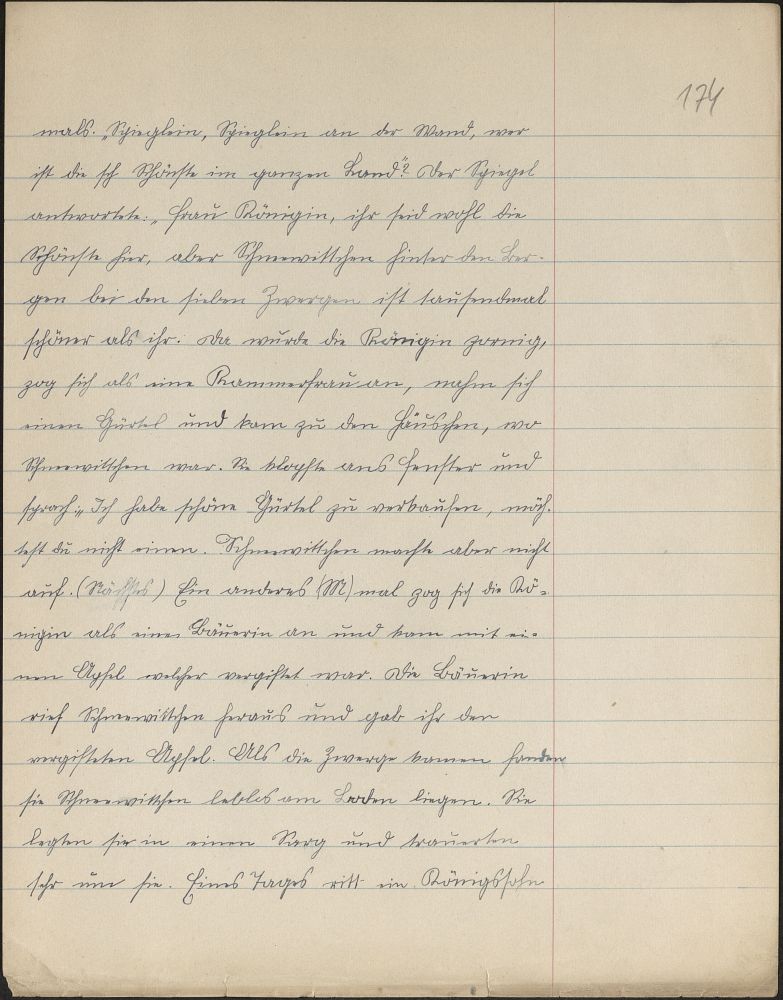 174
mals. „Spieglein, Spieglein an der Wand, wer
ist die sch Schönste im ganzen Land“? Der Spiegel
antwortete: „Frau Königin, ihr seid wohl die
Schönste hier, aber Schneewittchen hinter den Ber-
gen bei den sieben Zwergen ist tausendmal
schöner als ihr. Da wurde die Königin zornig,
zog sich als eine Kammerfrau an, nahm sich
einen Gürtel und kam zu den Häuschen, wo
Schneewittchen war. Sie klopfte ans Fenster und
sprach: „Ich habe schöne Gürtel zu verkaufen, möch-
test du nicht einen. Schneewittchen machte aber nicht
auf. (Nächstes) Ein anderes (M) mal zog sich die Kö-
nigin als eine Bäuerin an und kam mit ei-
nen Apfel welcher vergiftet war. Die Bäuerin
rief Schneewittchen heraus und gab ihr den
vergifteten Apfel. Als die Zwerge kamen fanden
sie Schneewittchen leblos am Boden liegen. Sie
legten sie in einen Sarg und trauerten
sehr um sie. Eines Tages ritt ein Königssohn